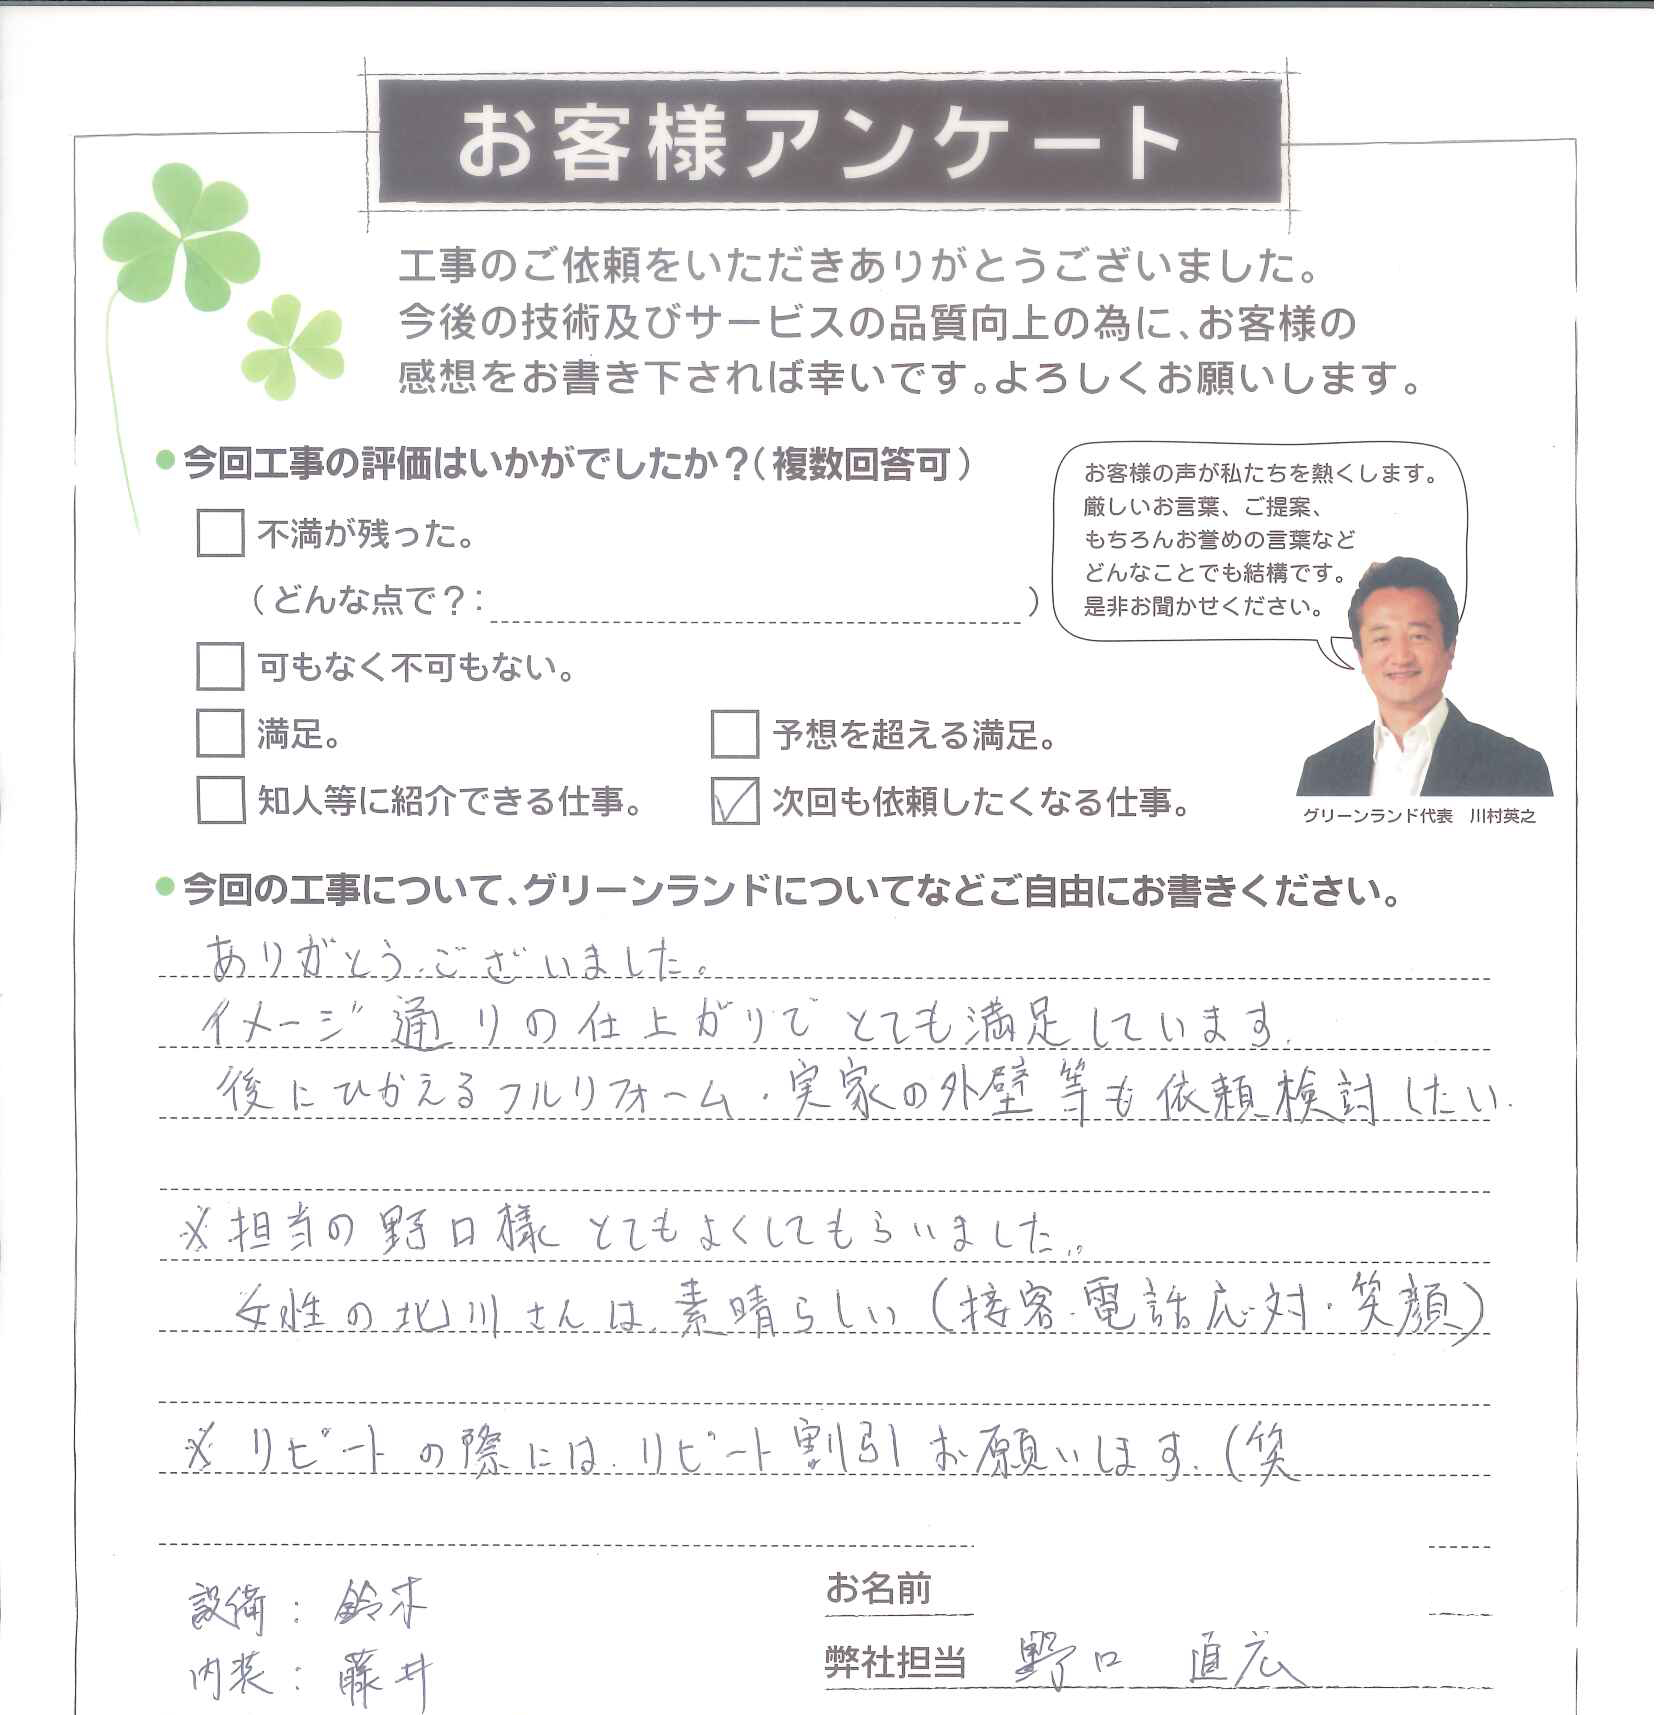 お客様アンケート
工事のご依頼をいただきありがとうございました。
今後の技術及びサービスの品質向上の為に、お客様の
感想をお書き下されば幸いです。よろしくお願いします。
●今回工事の評価はいかがでしたか？（複数回答可）
不満が残った。
（どんな点で？：　　　）
可もなく不可もない。
満足。
予想を超える満足。
知人等に紹介できる仕事。
次回も依頼したくなる仕事。
お客様の声が私たちを熱くします。
厳しいお言葉、ご提案、
もちろんお誉めの言葉など
どんなことでも結構です。
是非お聞かせください。
グリーンランド代表　川村英之
●今回の工事について、グリーンランドについてなどご自由にお書きください。
ありがとうございました。
イメージ通りの仕上がりでとても満足しています。
後にひかえるフルリフォーム・実家の外壁等も依頼検討したい。
※担当の野口様とてもよくしてもらいました。
女性の北川さんは、素晴らしい（接客・電話応対・笑顔）
※リピートの際には、リピート割引お願いします。（笑
設備：鈴木
内装：藤井
お名前
弊社担当　野口　直広